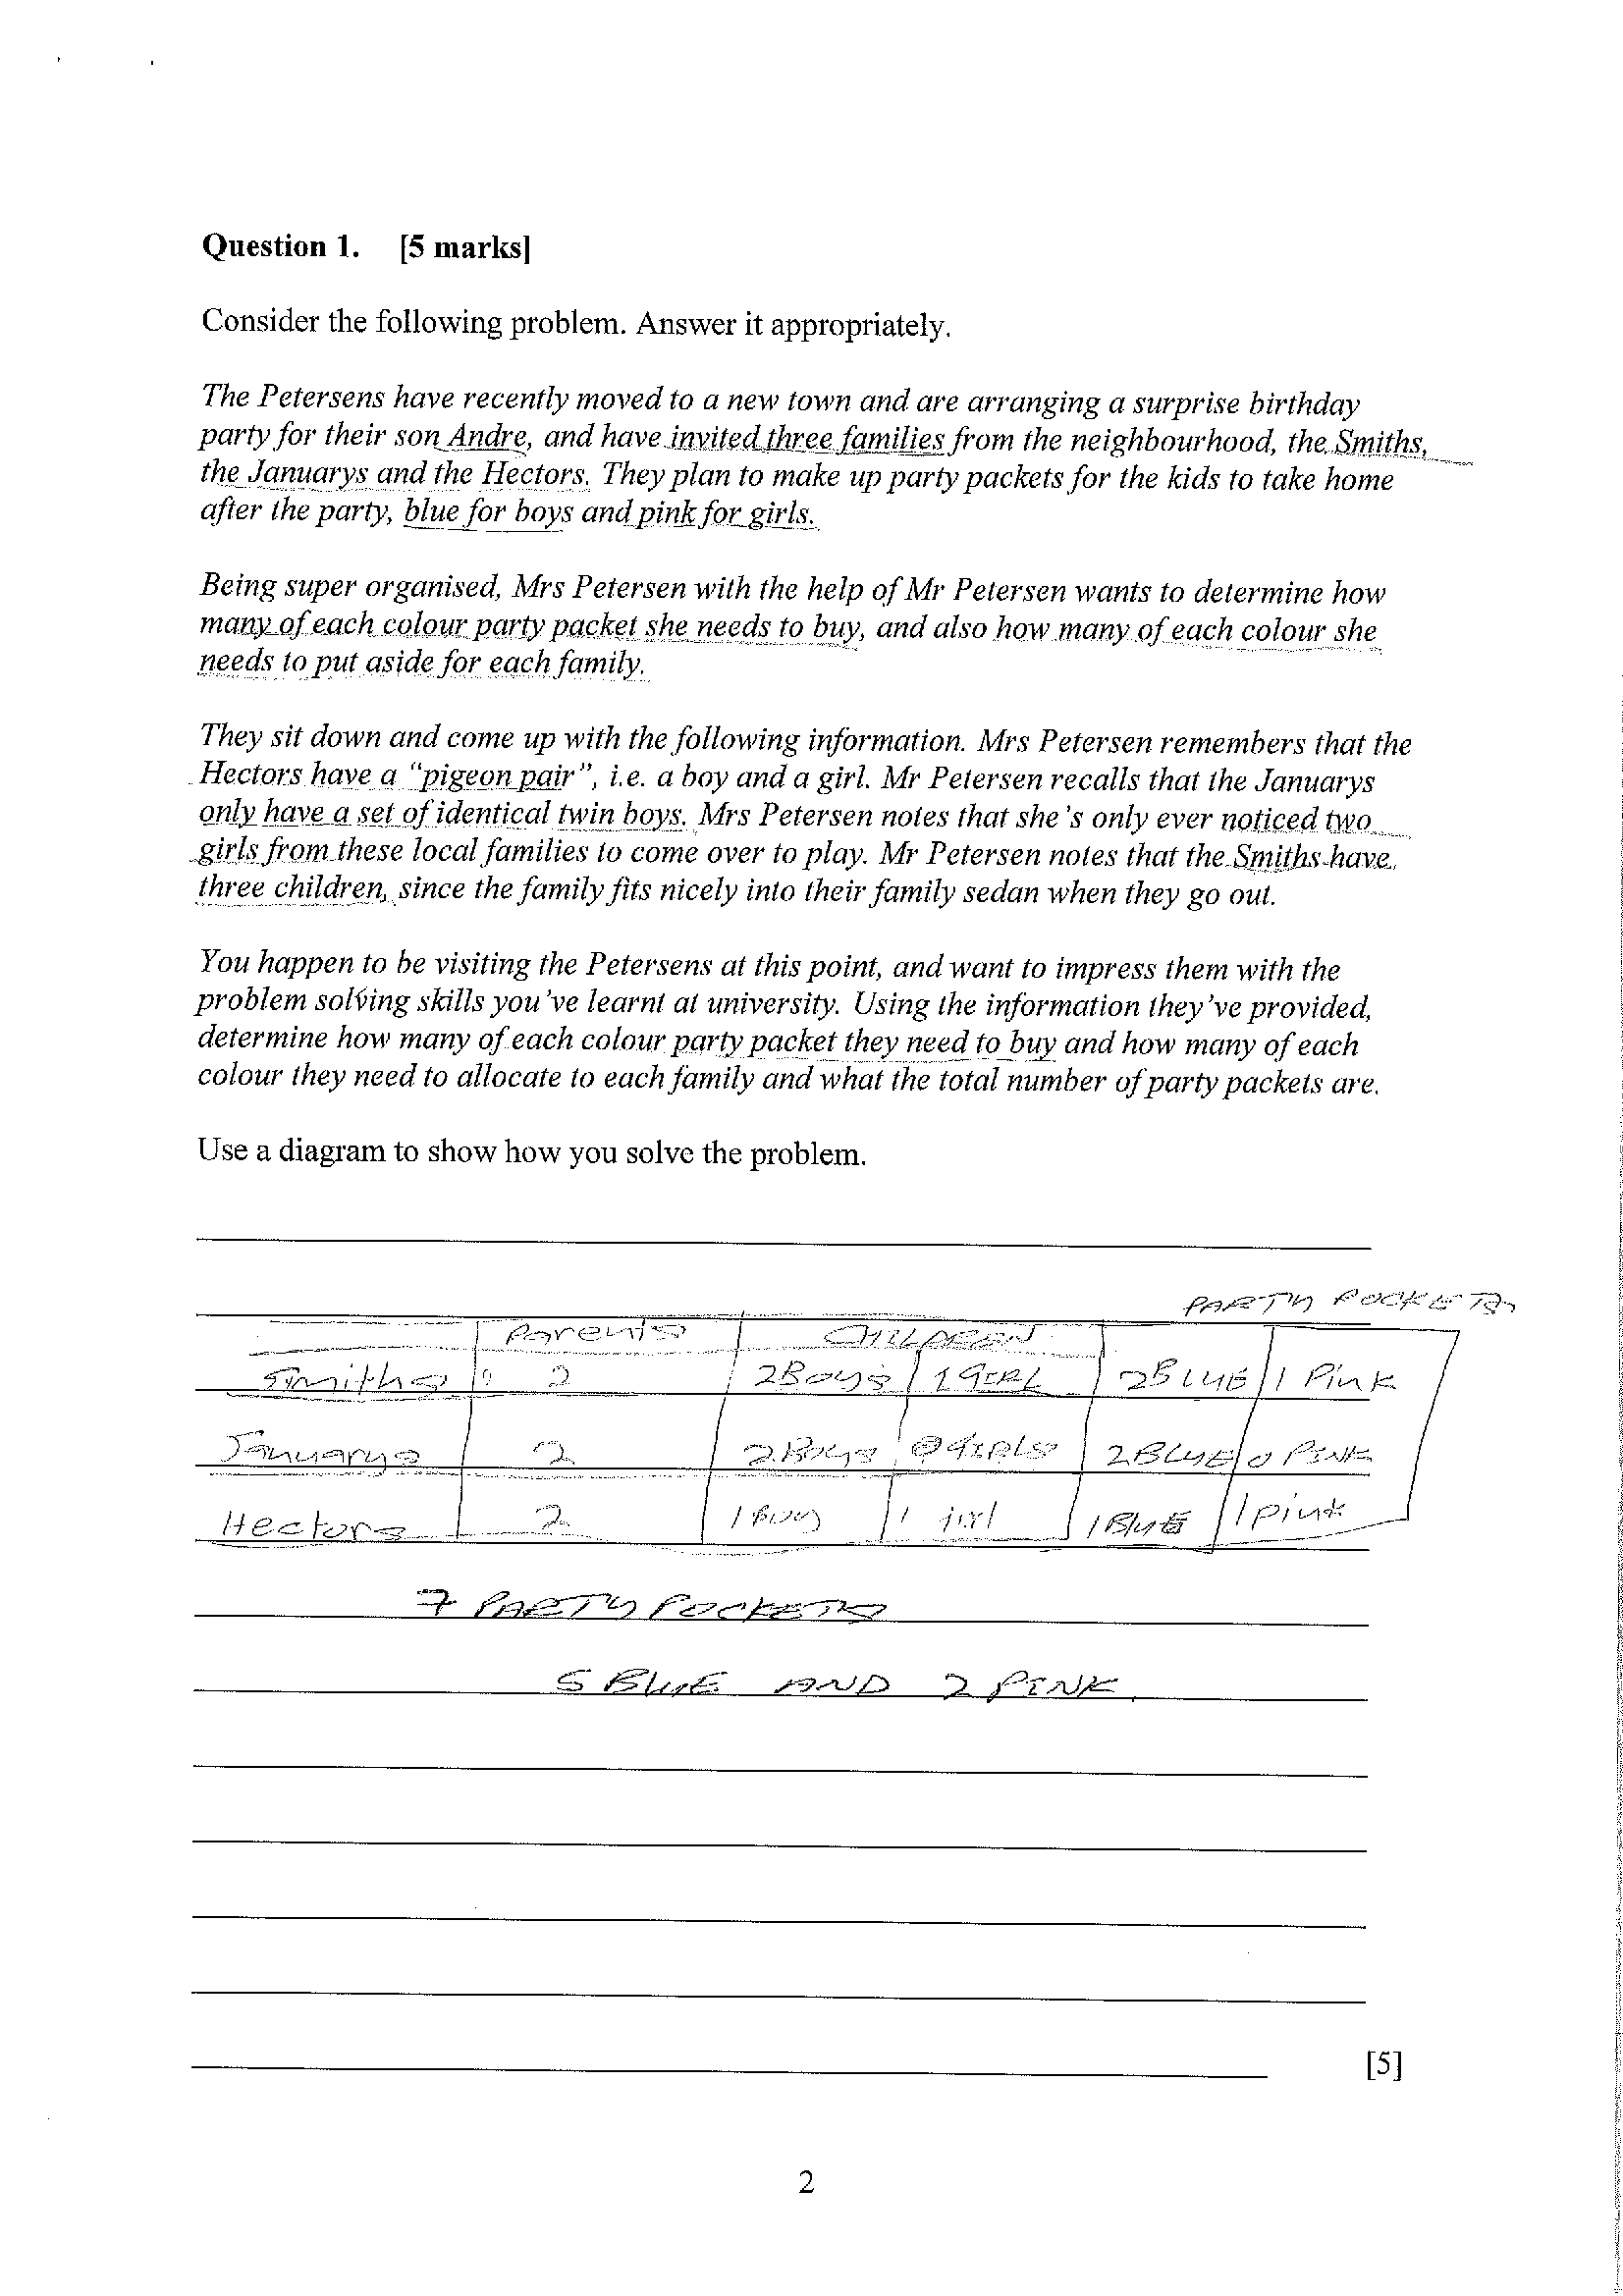 Question 1. [5 marks]
Consider the following problem. Answer it appropriately.
The Petersens have recently moved to a new town and are arranging a surprise birthday
party for their son Andre, and have invited three families from the neighbourhood, the Smiths,
the Januarys and the Hectors. They plan to make up party packets for the kids to take home
after the party, blue for boys and pink for girls.
Being super organised, Mrs Petersen with the help of Mr Petersen wants to determine how
many of each colour party packet she needs to buy, and also how many of each colour she
needs to put aside for each family.
They sit down and come up with the following information. Mrs Petersen remembers that the
Hectors have a "pigeon pair", i.e. a boy and a girl. Mr Petersen recalls that the Januarys
only have a set of identical twin boys. Mrs Petersen notes that she's only ever noticed two
girls from these local families to come over to play. Mr Petersen notes that the Smiths have
three children, since the family fits nicely into their family sedan when they go out.
You happen to be visiting the Petersens at this point, and want to impress them with the
problem solving skills you've learnt at university. Using the information they've provided,
determine how many of each colour party packet they need to buy and how many of each
colour they need to allocate to each family and what the total number of party packets are.
Use a diagram to show how you solve the problem.
PARTY POCKETS
Parents CHILDREN
Smiths 2 2Boys 1 GIRL 2BLUE 1 Pink
Januarys 2 2Boys 0 GIRLS 2BLUE 0 PINK
Hectors 2 1 Boy 1 girl 1 BLUE 1 pink
7 PARTY POCKETS
5 BLUE AND 2 PINK
[5]
2